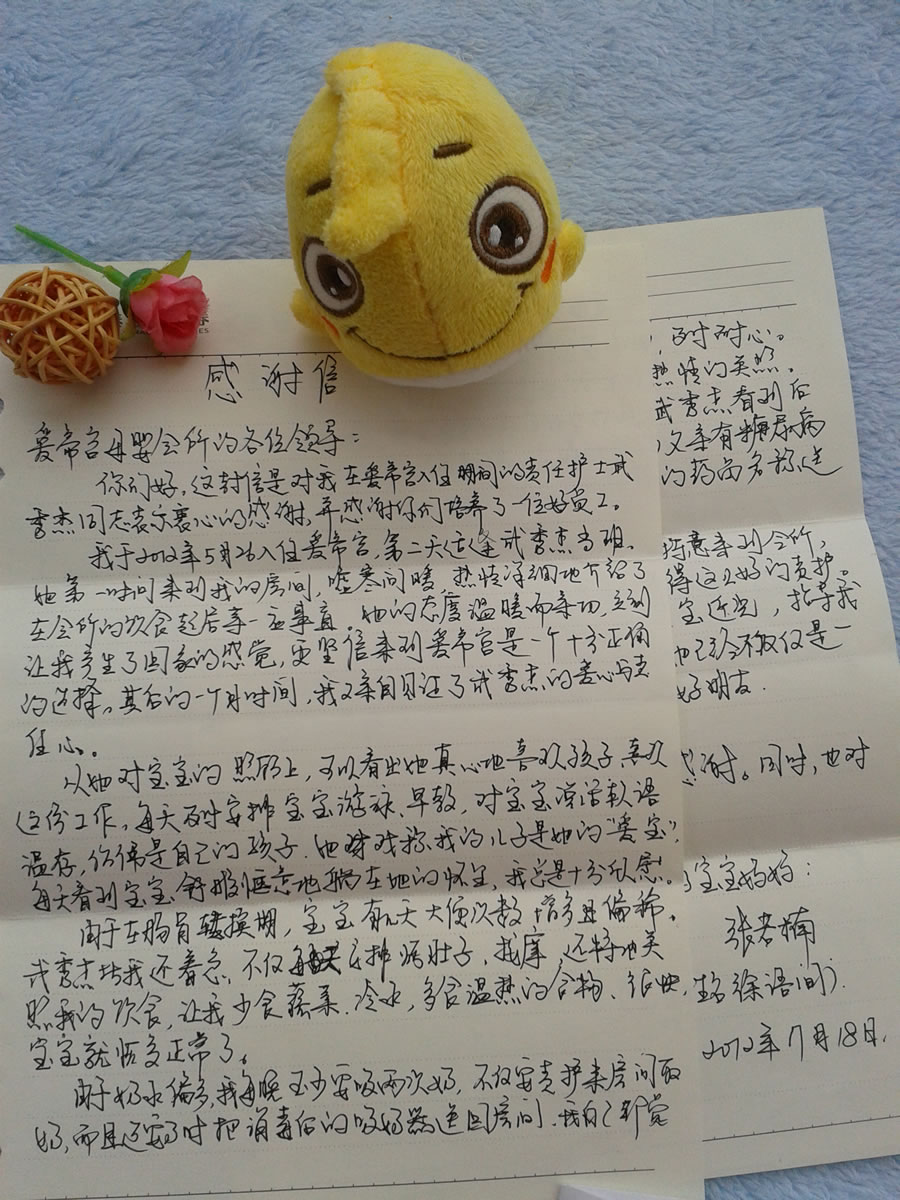 感谢信
爱帝宫母婴会所的各位领导：
你们好，这封信是对我在爱帝宫入住期间的责任护士武
秀杰同志表示衷心的感谢，并感谢你们培养了一位好员工。
我于2012年5月26入住爱帝宫，第二天迋逢武秀杰当班，
她第一时间来到我的房间，嘘寒问暖，热情详细地介绍了
在会所的饮食起居等一应事宜。她的态度温暖而亲切，立刻
让我产生了回家的感觉，更坚信来到爱帝宫是一个十分正确
的选择。其后的一个月时间，我又亲自见证了武秀杰的爱心与责
任心。
从她对宝宝的照料上，可以看出她真心地喜欢孩子，喜欢
这份工作，每天及时安排宝宝游泳、早教，对宝宝软语
温存，仿佛是自己的孩子。她戏称我的儿子是她的“爱宝”，
每天看到宝宝舒服惬意地躺在她的怀里，我总是十分欣慰。
由于在肠胃转换期，宝宝有几天大便次数增多且偏稀。
武秀杰比我还着急，不仅安排焐肚子、按摩，还特地关
照我的饮食，让我少食蔬菜、冷水，多食温热的食物、很快，
宝宝就恢复正常了。
由于奶水偏多，我每晚至少要吸两次奶，不仅要责护来房间取
奶，而且还要及时把消毒后的吸奶器送回房间，我自己都觉
，及时耐心。
热情的关照。
武秀杰看到后
父亲有糖尿病
的药的名称送
特意来到会所，
得这么好的责护。
宝近况，指导我
她已经不仅仅是一
好朋友。
感谢。同时，也对
宝宝妈妈：
张若楠
徐语间）
2012年7月18日.